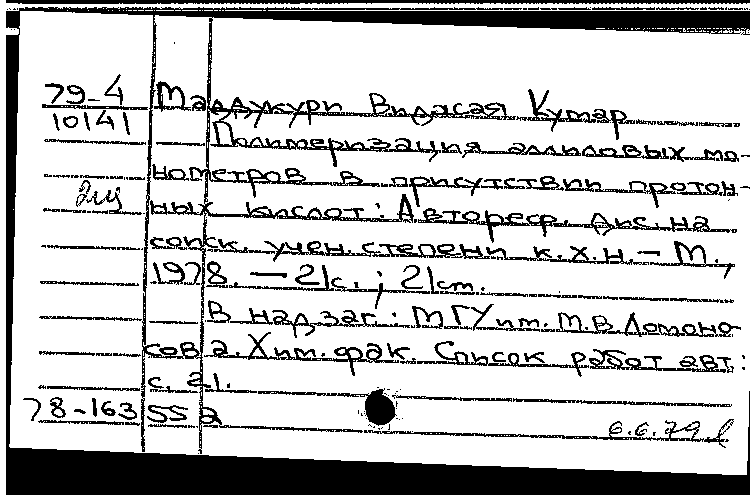 79-4 Маддукури Виджая Кумар
10141 Полимеризация аллиловых мо-
нометров в присутствии протон-
2щ ных кислот: Автореф. дис. на
соиск. учен. степени к.х.н. - М.,
1978. - 21с.; 21см.
В надзаг.: МГУ им. М.В. Ломоно-
сова. Хим. фак. Список работ авт.:
с. 21.
78-163552
6.6.79